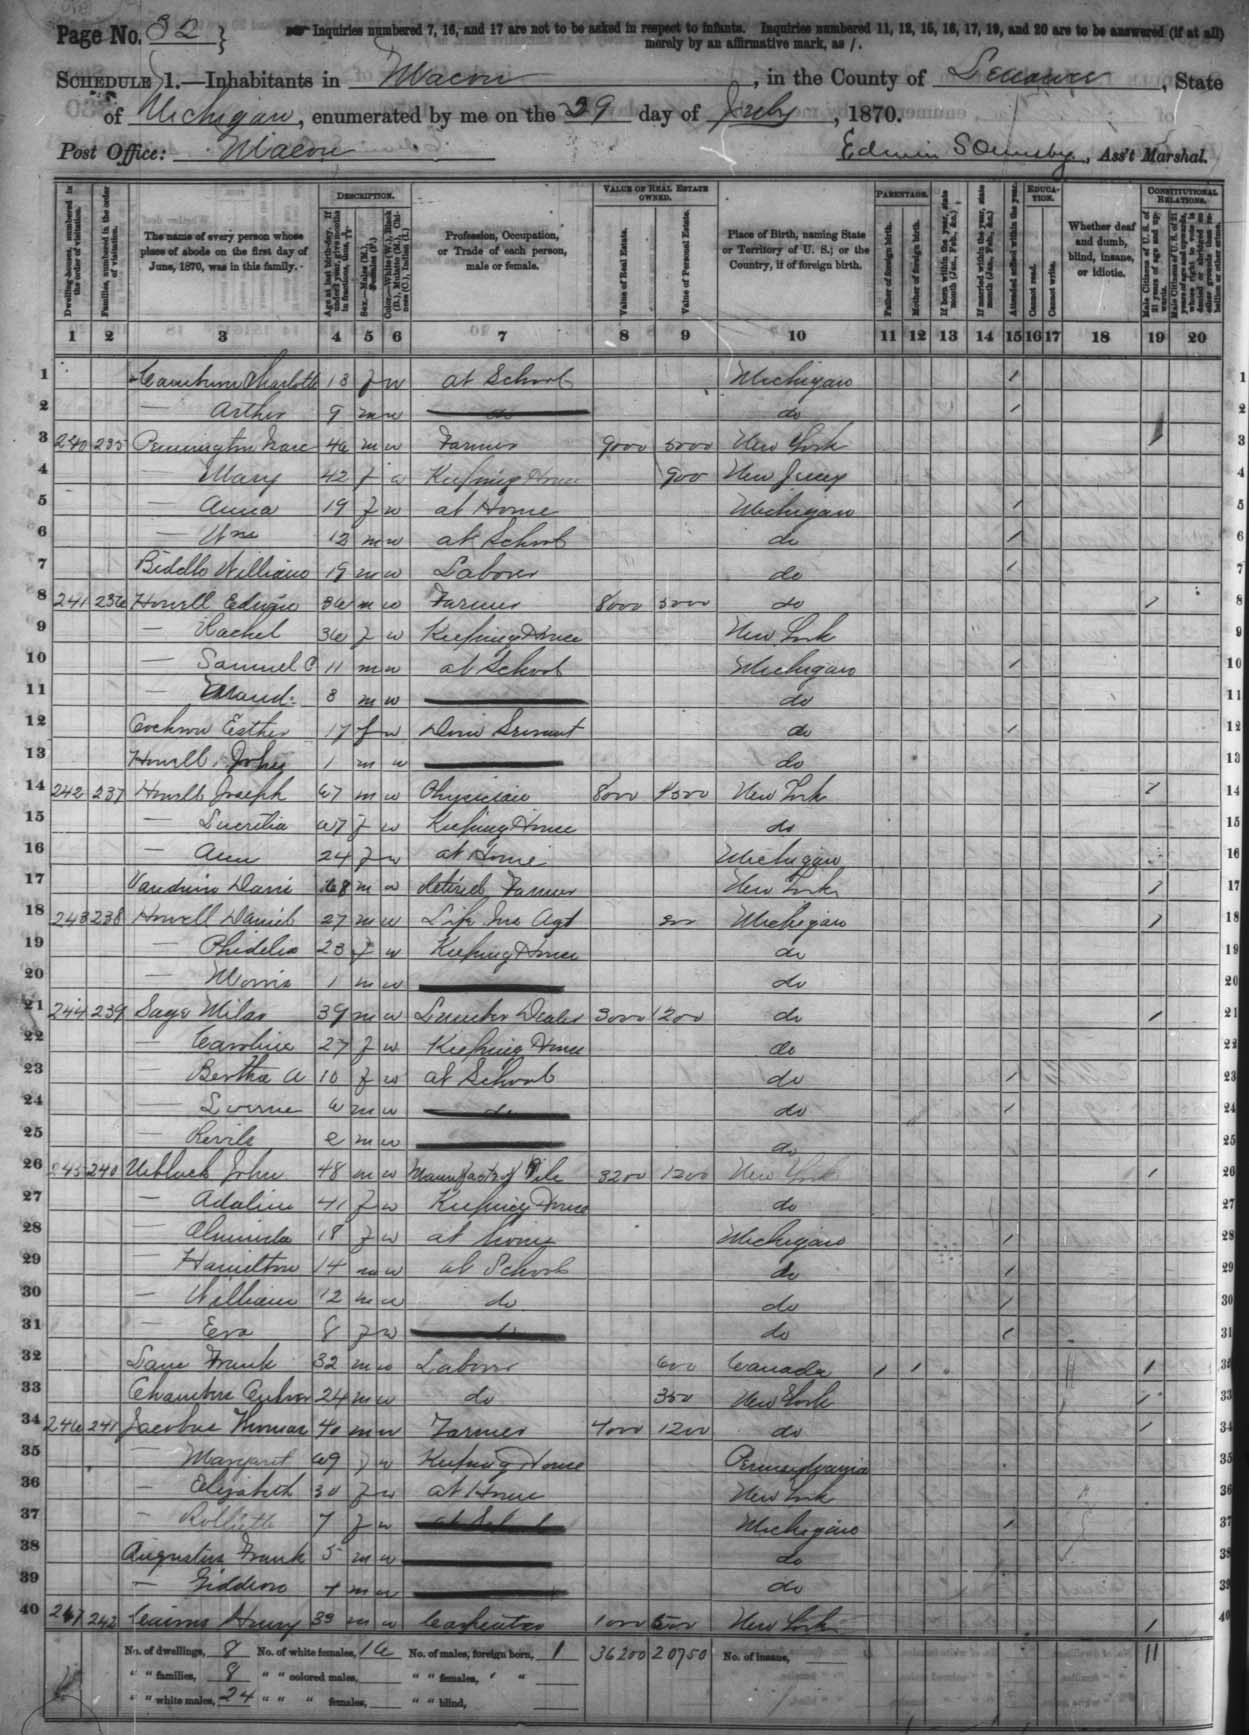 Page No. 32 } Inquiries numbered 7, 16, and 17 are not to be asked in respect to infants. Inquiries numbered 11, 12, 15, 16, 17, 19, and 20 are to be answered (if at all)
merely by an affirmative mark, as /.
SCHEDULE 1.—Inhabitants in Macon, in the County of Lenawee, State
of Michigan, enumerated by me on the 29 day of July, 1870.
Post Office: Macon Edwin Ormsby, Ass't Marshal.
DESCRIPTION. VALUE OF REAL ESTATE OWNED. PARENTAGE. EDUCATION. CONSTITUTIONAL RELATIONS.
Dwelling-houses, numbered in the order of visitation.
Families, numbered in the order of visitation.
The name of every person whose place of abode on the first day of June, 1870, was in this family.
Age at last birth-day. If under 1 year, give months in fractions, thus, 3/12
Sex.—Males (M.), Females (F.)
Color.—White (W.), Black (B.), Mulatto (M.), Chinese (C.), Indian (I.)
Profession, Occupation, or Trade of each person, male or female.
Value of Real Estate.
Value of Personal Estate.
Place of Birth, naming State or Territory of U. S.; or the Country, if of foreign birth.
Father of foreign birth.
Mother of foreign birth.
If born within the year, state month (Jan., Feb., &c.)
If married within the year, state month (Jan., Feb., &c.)
Attended school within the year.
Cannot read.
Cannot write.
Whether deaf and dumb, blind, insane, or idiotic.
Male Citizens of U. S. of 21 years of age and upwards.
1 2 3 4 5 6 7 8 9 10 11 12 13 14 15 16 17 18 19 20
1 Camburn Charlotte 13 f w at School Michigan / 1
2 — Arthur 9 m w do do / 2
3 240 235 Pennington Isaac 46 m w Farmer 9000 5000 New York / 3
4 — Mary 42 f w Keeping House 900 New Jersey 4
5 — Anna 19 f w at Home Michigan / 5
6 — Wm 12 m w at School do / 6
7 William 19 m w Laborer do / 7
8 241 236 Howell Edwin 36 m w Farmer 8000 5000 do / 8
9 — Rachel 36 f w Keeping House New York 9
10 — Samuel C 11 m w at School Michigan / 10
11 — 3 m w do 11
12 Esther 17 f w Dom Servant do / 12
13 Howell, John 1 m w do 13
14 242 237 Howell Joseph 67 m w Physician 8000 4500 New York / 14
15 — Lucretia 67 f w Keeping House do 15
16 — Ann 24 f w at Home Michigan 16
17 68 m w Retired Farmer New York / 17
18 243 238 Howell Daniel 27 m w Life Ins Agt Michigan / 18
19 — Phidelia 23 f w Keeping House do 19
20 — Morris 1 m w do 20
21 244 239 Sage Milas 39 m w Lumber Dealer 3000 1200 do / 21
22 — Caroline 27 f w Keeping House do 22
23 — Bertha A 10 f w at School do / 23
24 — 6 m w do do / 24
25 — 2 m w do 25
26 245 240 John 48 m w Manufactr of Tile 3200 1200 New York / 26
27 — Adaline 41 f w Keeping House do 27
28 — 18 f w at home Michigan / 28
29 — Hamilton 14 m w at School do / 29
30 — William 12 m w do do / 30
31 — Eva 8 f w do do / 31
32 Lane Frank 32 m w Laborer 600 Canada / / / 32
33 Chambers 24 m w do 350 New York / 33
34 246 241 Jacobus Thomas 40 m w Farmer 4000 1200 do / 34
35 — Margaret 69 f w Keeping House Pennsylvania 35
36 — Elizabeth 30 f w at Home New York 36
37 — 7 f w at School Michigan / 37
38 Augustus Frank 5 m w do 38
39 — Giddeon 4 m w do 39
40 247 242 Cairns Henry 39 m w Carpenter 1000 500 New York / 40
No. of dwellings, 8 No. of white females, 16 No. of males, foreign born, 1 36200 20750 No. of insane, 11
" " families, 8 " " colored males, " " females, " "
" " white males, 24 " " " females, " " blind,